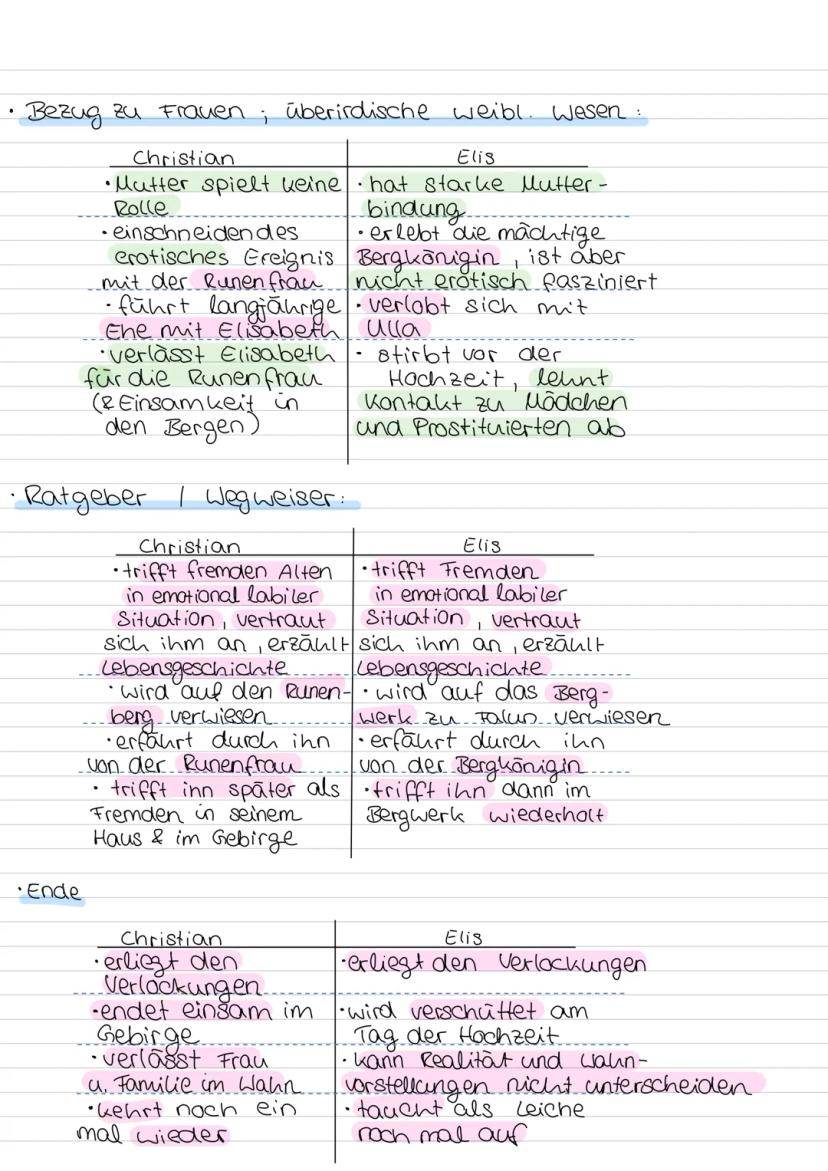 • Bezug zu Frauen ; überirdische weibl. Wesen :
Christian
• Mutter spielt keine
Rolle
• einschneidendes
erotisches Ereignis
mit der Runenfrau
• führt langjährige
Ehe mit Elisabeth
• verlässt Elisabeth
für die Runenfrau
(& Einsamkeit in
den Bergen)
Elis
• hat starke Mutter-
bindung
• erlebt die mächtige
Bergkönigin , ist aber
nicht erotisch fasziniert
• verlobt sich mit
Ulla
• stirbt vor der
Hochzeit , lehnt
Kontakt zu Mädchen
und Prostituierten ab
• Ratgeber / Wegweiser:
Christian
• trifft fremden Alten
in emotional labiler
Situation , vertraut
sich ihm an , erzählt
Lebensgeschichte
• wird auf den Runen-
berg verwiesen
• erfährt durch ihn
von der Runenfrau
• trifft ihn später als
Fremden in seinem
Haus & im Gebirge
Elis
• trifft Fremden
in emotional labiler
Situation , vertraut
sich ihm an , erzählt
Lebensgeschichte
• wird auf das Berg-
werk zu Falun verwiesen
• erfährt durch ihn
von der Bergkönigin
• trifft ihn dann im
Bergwerk wiederholt
• Ende
Christian
• erliegt den
Verlockungen
• endet einsam im
Gebirge
• verlässt Frau
u. Familie im Wahn
• kehrt noch ein
mal wieder
Elis
• erliegt den Verlockungen
• wird verschüttet am
Tag der Hochzeit
• kann Realität und Wahn-
vorstellungen nicht unterscheiden
• taucht als Leiche
noch mal auf